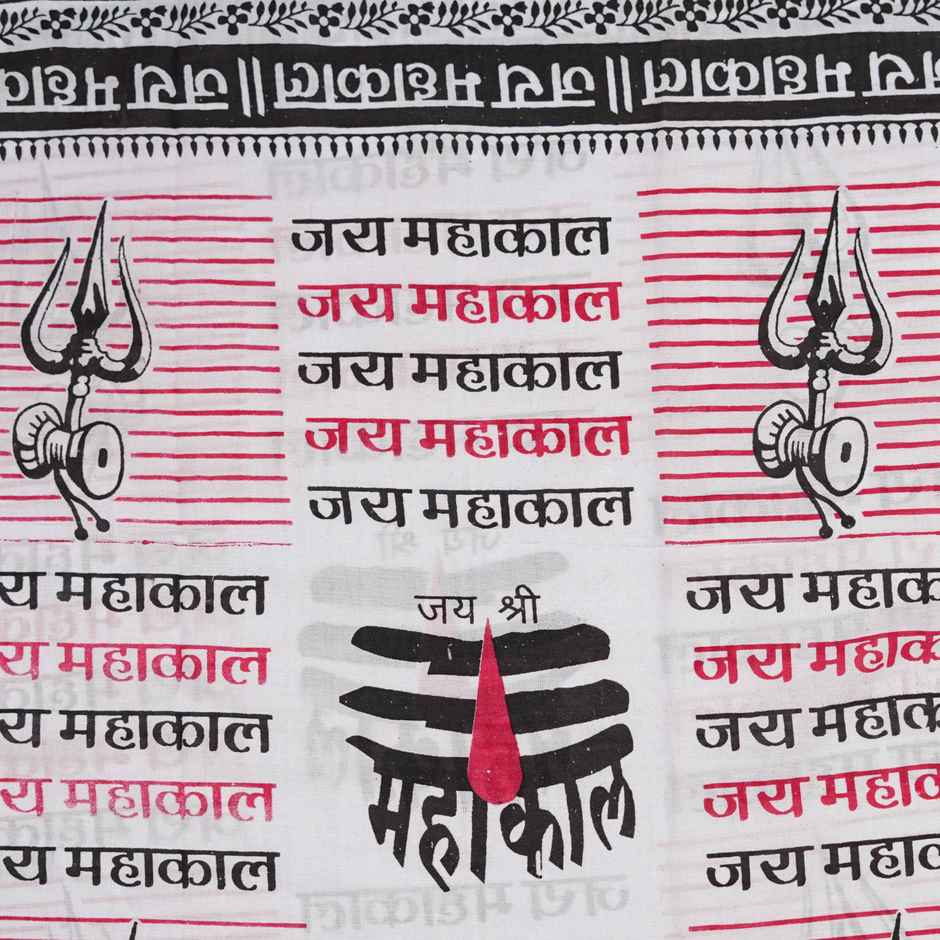 जय महाकाल || जय महाकाल || जय महाकाल
जय महाकाल
जय महाकाल
जय महाकाल
जय महाकाल
जय महाकाल
जय महाकाल
जय महाकाल
जय महाकाल
जय महाकाल
जय महाकाल
जय श्री
महाकाल
जय महाकाल
जय महाकाल
जय महाकाल
जय महाकाल
जय महाकाल